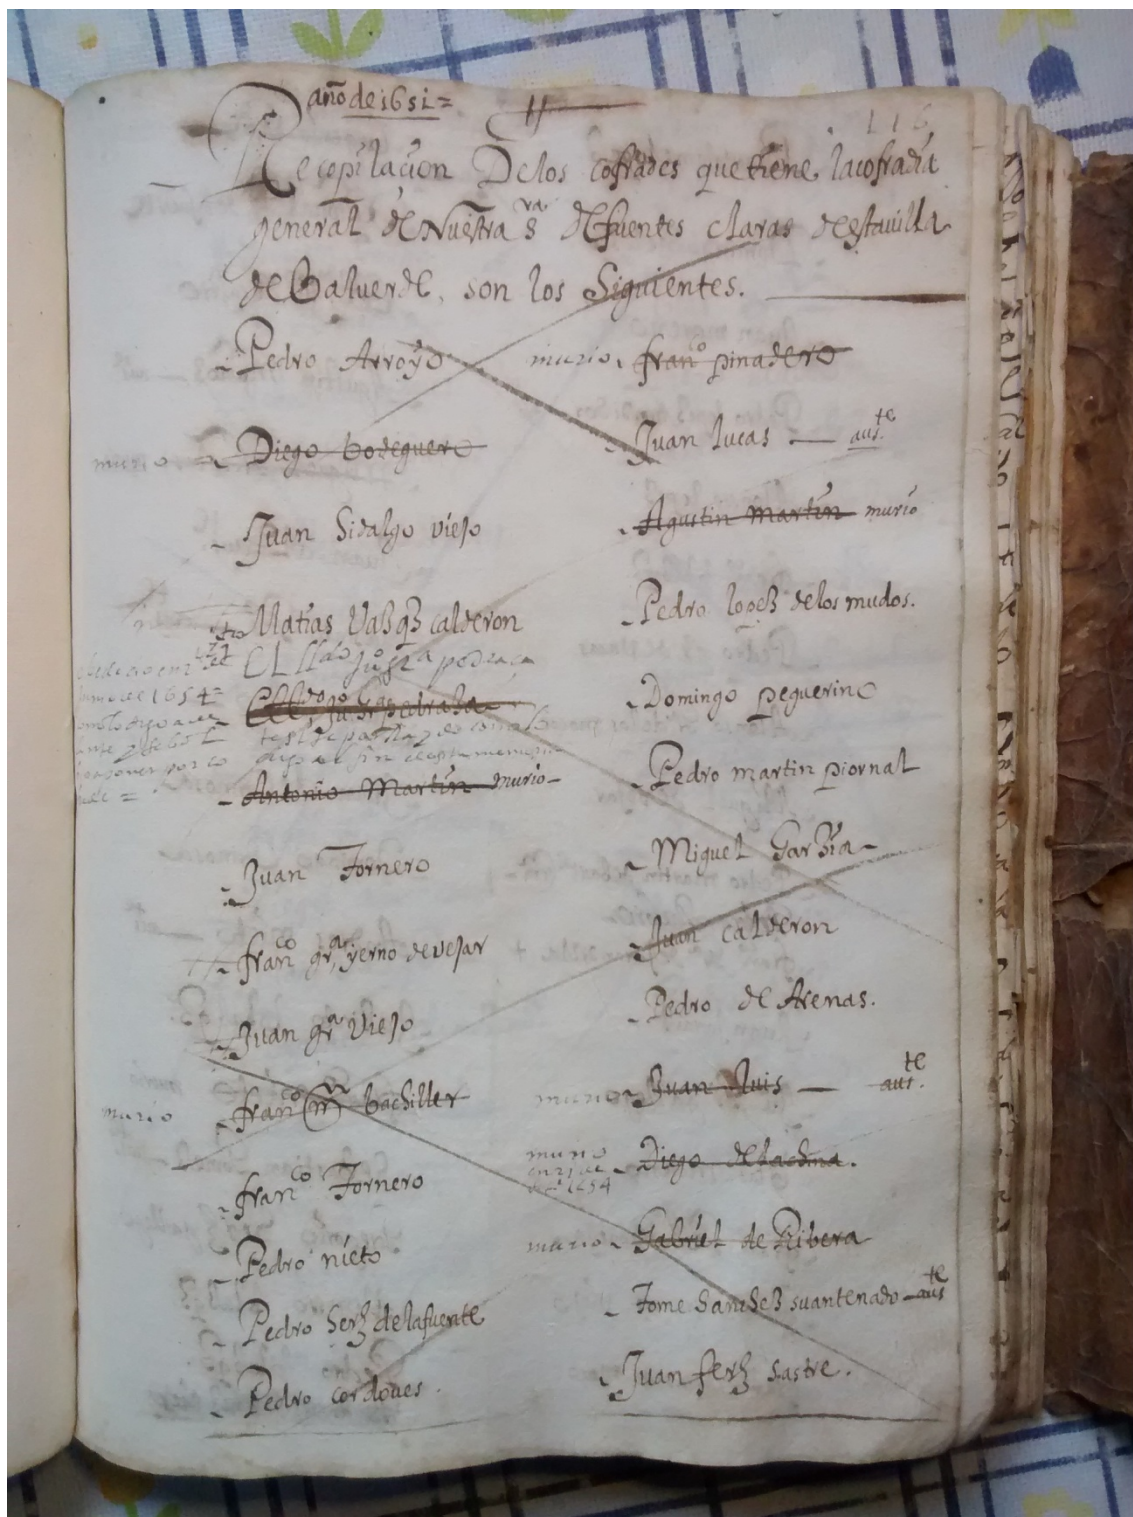 año de 1651=
116
Recopilacion De los cofrades que tiene la cofradia
general de Nuestra Sra de fuentes claras de esta uilla
de Balverde, son los Siguientes.
Pedro Arroyo
murio Diego bodeguero
Juan hidalgo viejo
Matias Vasqz calderon
El Lldo Juo gra pedraça
Antonio Martin murio
Juan Fornero
franco gra, yerno de vejar
Juan gra Viejo
murio franco mrn bachiller
franco Fornero
Pedro nieto
Pedro herz de la fuente
Pedro cordoues.
murio franco pinadero
Juan lucas — auste
Agustin martin murio
Pedro lopez de los mudos.
Domingo peguerino
Pedro martin piornal
Miguel Garzia
Juan calderon
Pedro de Arenas.
murio Juan luis — auste
murio
1654
Diego de la
murio Gabriel de Ribera
Tome sanchez su antenado auste
Juan ferz sastre.